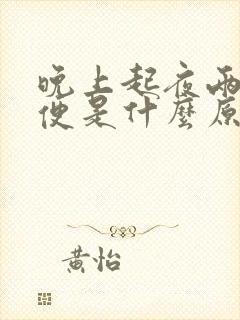 晚上起夜兩
便是什麼原
黃怡